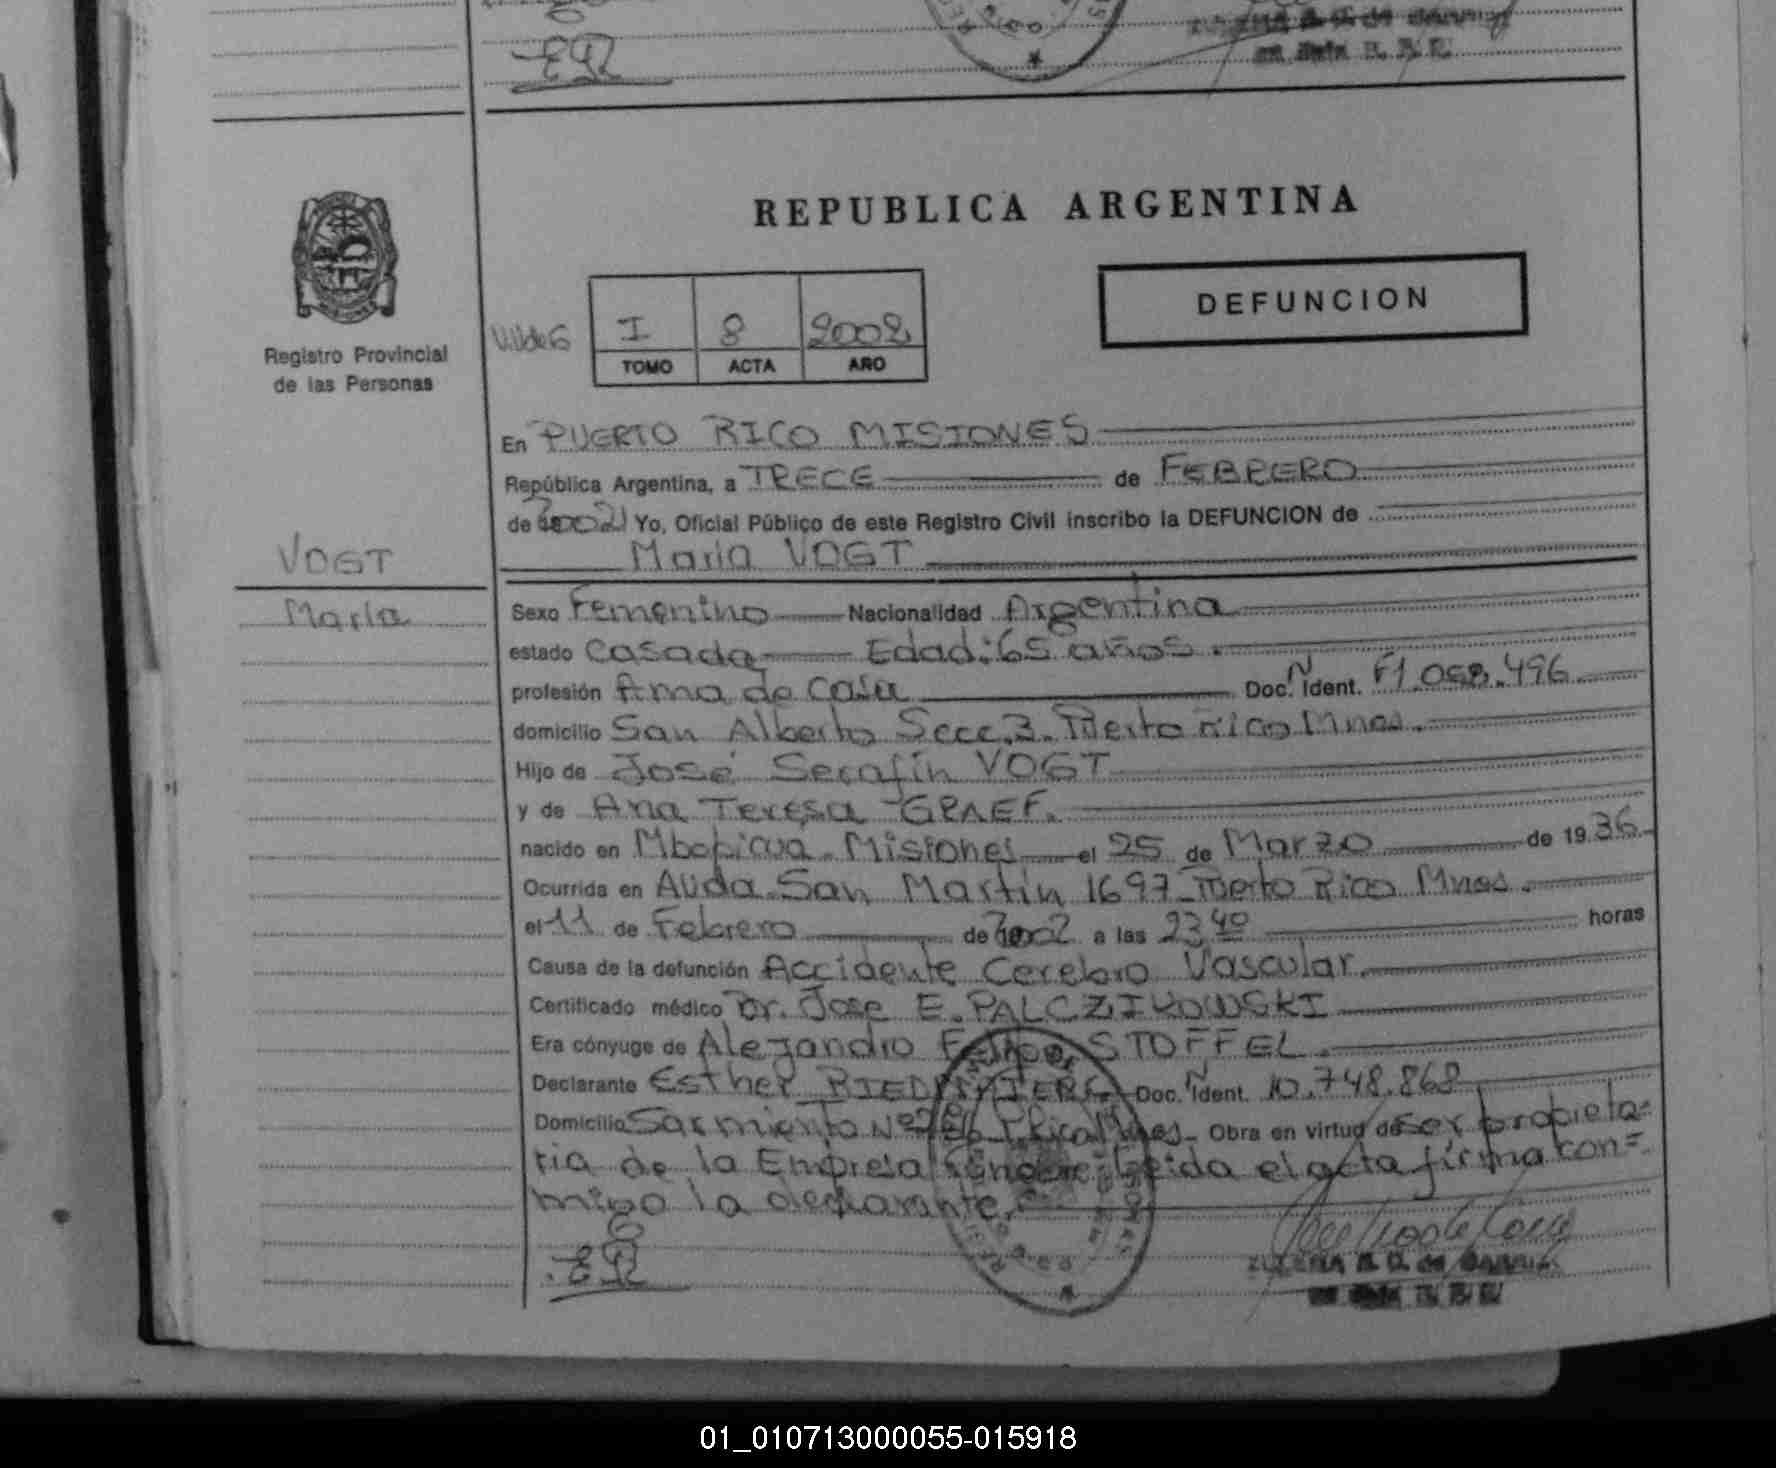 REPUBLICA ARGENTINA
DEFUNCION
I 8 2002
TOMO ACTA AÑO
Registro Provincial
de las Personas
En PUERTO RICO MISIONES
República Argentina, a TRECE de FEBRERO
de 2002 Yo, Oficial Público de este Registro Civil inscribo la DEFUNCION de
María VOGT
VOGT
María
Sexo Femenino Nacionalidad Argentina
estado Casada Edad: 65 años.
profesión Ama de Casa Doc. N Ident. F1.058.496
domicilio San Alberto Secc. 3. Puerto Rico Mnes.
Hijo de José Serafín VOGT
y de Ana Teresa GRAEF.
nacido en Mbopicua - Misiones el 25 de Marzo de 1936
Ocurrida en Avda. San Martín 1697 - Puerto Rico Mnes.
el 11 de Febrero de 2002 a las 23,40 horas
Causa de la defunción Accidente Cerebro Vascular.
Certificado médico Dr. José E. PALCZIKOWSKI
Era cónyuge de Alejandro Felipe STOFFEL.
Declarante Esther Doc. N Ident. 10.748.868
Domicilio Sarmiento Nº P. Rico Mnes - Obra en virtud de ser propieta=
ria de la Empresa Fúnebre Leída el acta firma con=
migo la declarante.
01_010713000055-015918